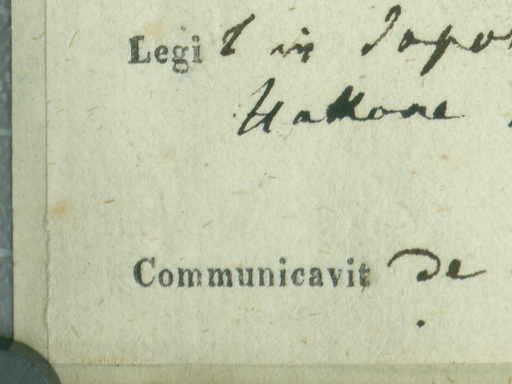 Legit in Japo
Hakkone
Communicavit de